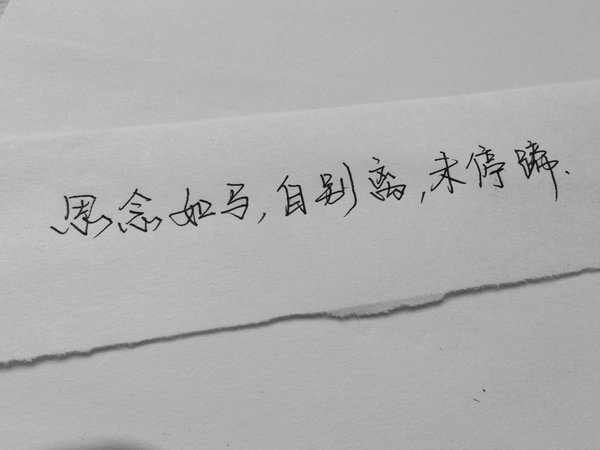 思念如马,自别离,未停蹄.